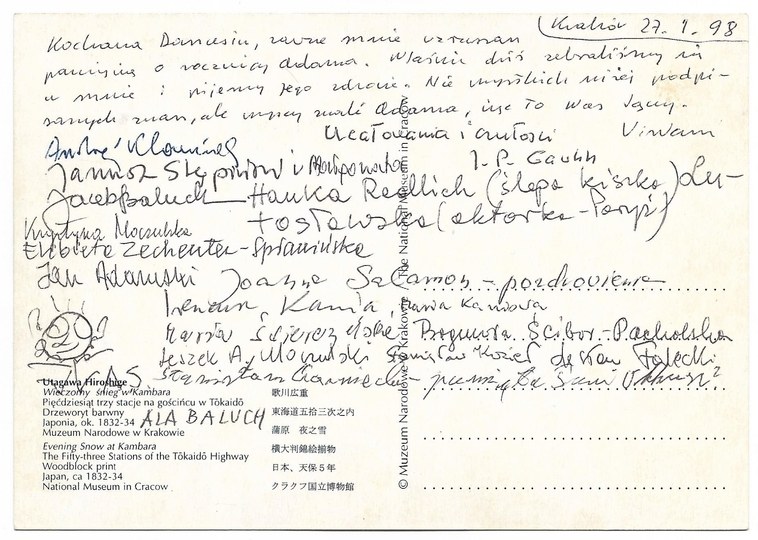 Kraków 27.1.98
Kochana Danusiu, zawsze mnie wzruszasz
pamięcią o rocznicy Adama. Właśnie dziś zebraliśmy się
u mnie i pijemy Jego zdrowie. Nie wszystkich niżej podpi-
sanych znasz, ale wszyscy znali Adama, więc to Was łączy.
Ucałowania i czułości Vivam
Andrzej
Janusz i Małgorzata
Jacek Baluch Hanka Redlich (ślepa kiszka) Lu-
tosławska (aktorka - Paryż)
Krystyna Moczulska
Elżbieta Zechenter-Spławińska
Jan Adamski Joanna Salamon - pozdrowienia
Ireneusz Kania, Maria Kaniowa
Bogumiła Ścibor-
Leszek A. Moczulski Stanisław
Stanisław
ALA BALUCH
Utagawa Hiroshige
Wieczorny śnieg w Kambara
Pięćdziesiąt trzy stacje na gościńcu w Tōkaidō
Drzeworyt barwny
Japonia, ok. 1832-34
Muzeum Narodowe w Krakowie
Evening Snow at Kambara
The Fifty-three Stations of the Tōkaidō Highway
Woodblock print
Japan, ca 1832-34
National Museum in Cracow
歌川広重
東海道五拾三次之内
蒲原 夜之雪
横大判錦絵揃物
日本、天保5年
クラクフ国立博物館
© Muzeum Narodowe w Krakowie The National Museum in Cracow